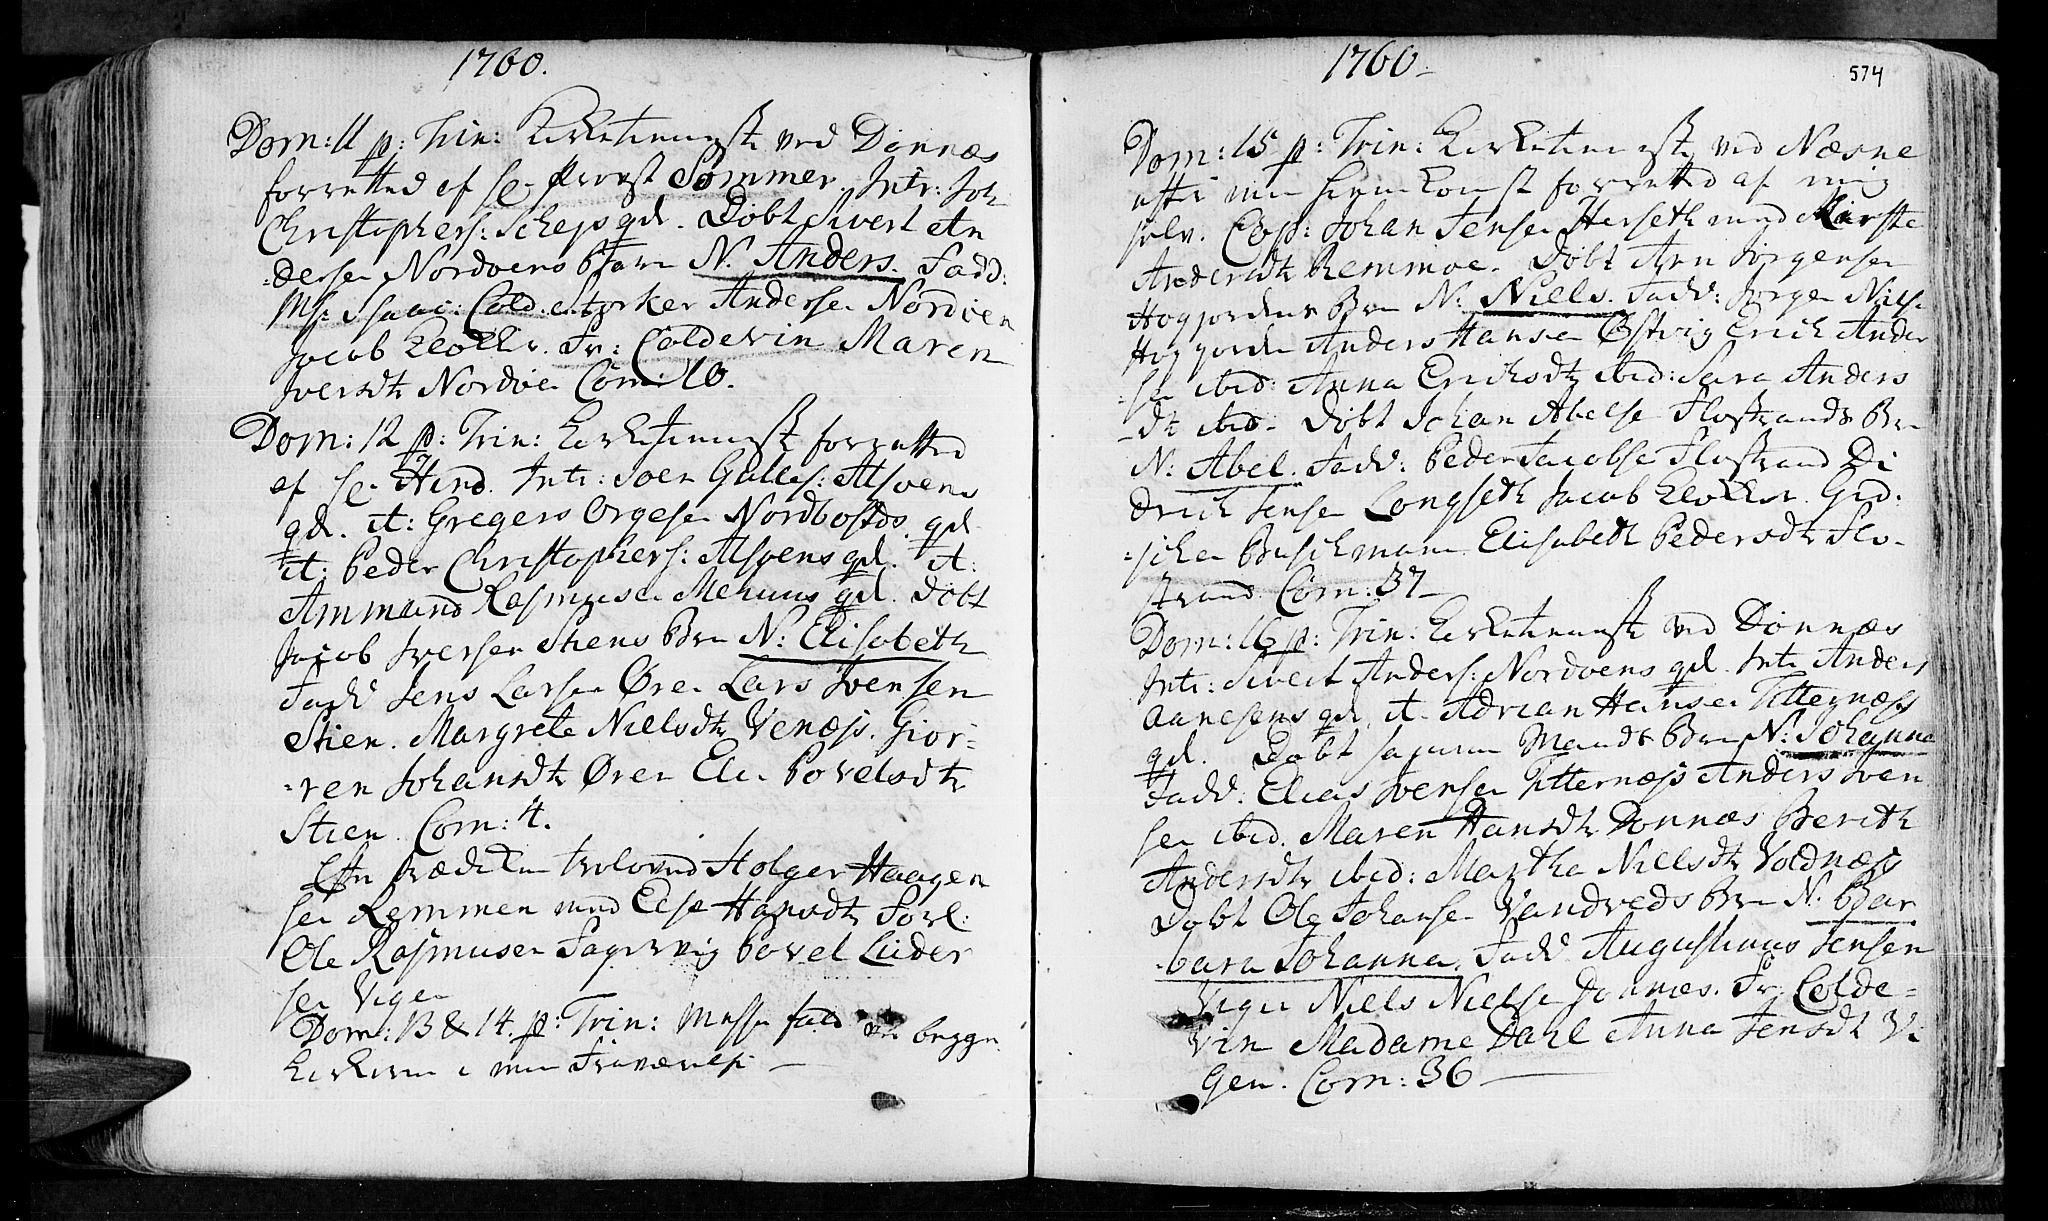 1760.
Dom: 11 p: Trin: Kirketieneste ved Dönnæs
forretted af Hr Provst Sommer. Intr: Joh
Christophers: Scheys qd. Döbt Sivert An
-dersen Nordvens Barn N. Anders. Fadd:
Ms: Isaac: Cold: Storker Andersen Nordven
Jacob Klokker. Fr: Coldevin Maren
Iversdtr Nordven Com: 10.
Dom: 12 p: Trin: Kirketieneste forretted
af Hr Hind. Intr: Soen Gulles: Alsvens
qd. it: Gregers Orgesen Nordbostds qd
it: Peder Christophers: Alsvens qd. it:
Ammund Rasmusen Mehuus qd. Döbt
Jacob Iversen Stiens Brn N: Elisabeth
Fadd Jens Larsen Ören Lars Ivensen
Stien. Margrete Nielsdtr Venæs. Giör-
-ren Johansdtr Ören Elen Povelsdtr
Stien. Com: 4.
Eftr Prædiken troloved Holger Haagen
sen Remmen med Else Hansdtr Forl:
Ole Rasmusen Fagervig Povel Lüder
sen Vigen
Dom: 13 & 14. p: Trin: Messe fald ved begge
Kirkerne i min Fraværelse —
1760 -
574
Dom: 15 p: Trin: Kirketieneste ved Næsne
efter min hiemkomst forretted af mig
selv. Cop: Johan Jensen Herseth med Kirste
Andersdtr Remmoe. Döbt Arn Jörgensen
Hogjordens Brn N: Niels. Fadd: Jörgen Nilse
Hogjorden Anders Hansen Östvig Erich Ander
-sen ibid: Anna Erichsdtr ibid: Sara Anders
-dtr ibid. Döbt Johan Abelse Flostrands Brn
N: Abel. Fadd: Peder Jacobse Flostrand Di
drich Jensen Longseth Jacob Klokker. Gid:
-sken Buschmann Elisabeth Pedersdtr Flo-
strand Com: 37 -
Dom: 16 p: Trin: Kirketieneste ved Dönnæs
Intr: Sivert Anders: Nordvens qd. Intr Anders
Aanesens qd, it. Adrian Hansen Titternæs
qd. Döbt samme Mands Brn N: Johanna
Fadd: Elias Ivensen Titternæs Anders Iven
sen ibid. Maren Hansdtr Dönnæs Berith
Andersdtr ibid: Martha Nielsdtr Voldnæs
Döbt Ole Johansen Vandveds Brn N: Bar
-bara Johanna. Fadd Augustinus Jensen
Vigen Niels Nielse Dönnæs. Fr: Colde-
vin Madame Dahl Anna Jensdtr Vi
gen. Com: 36 —